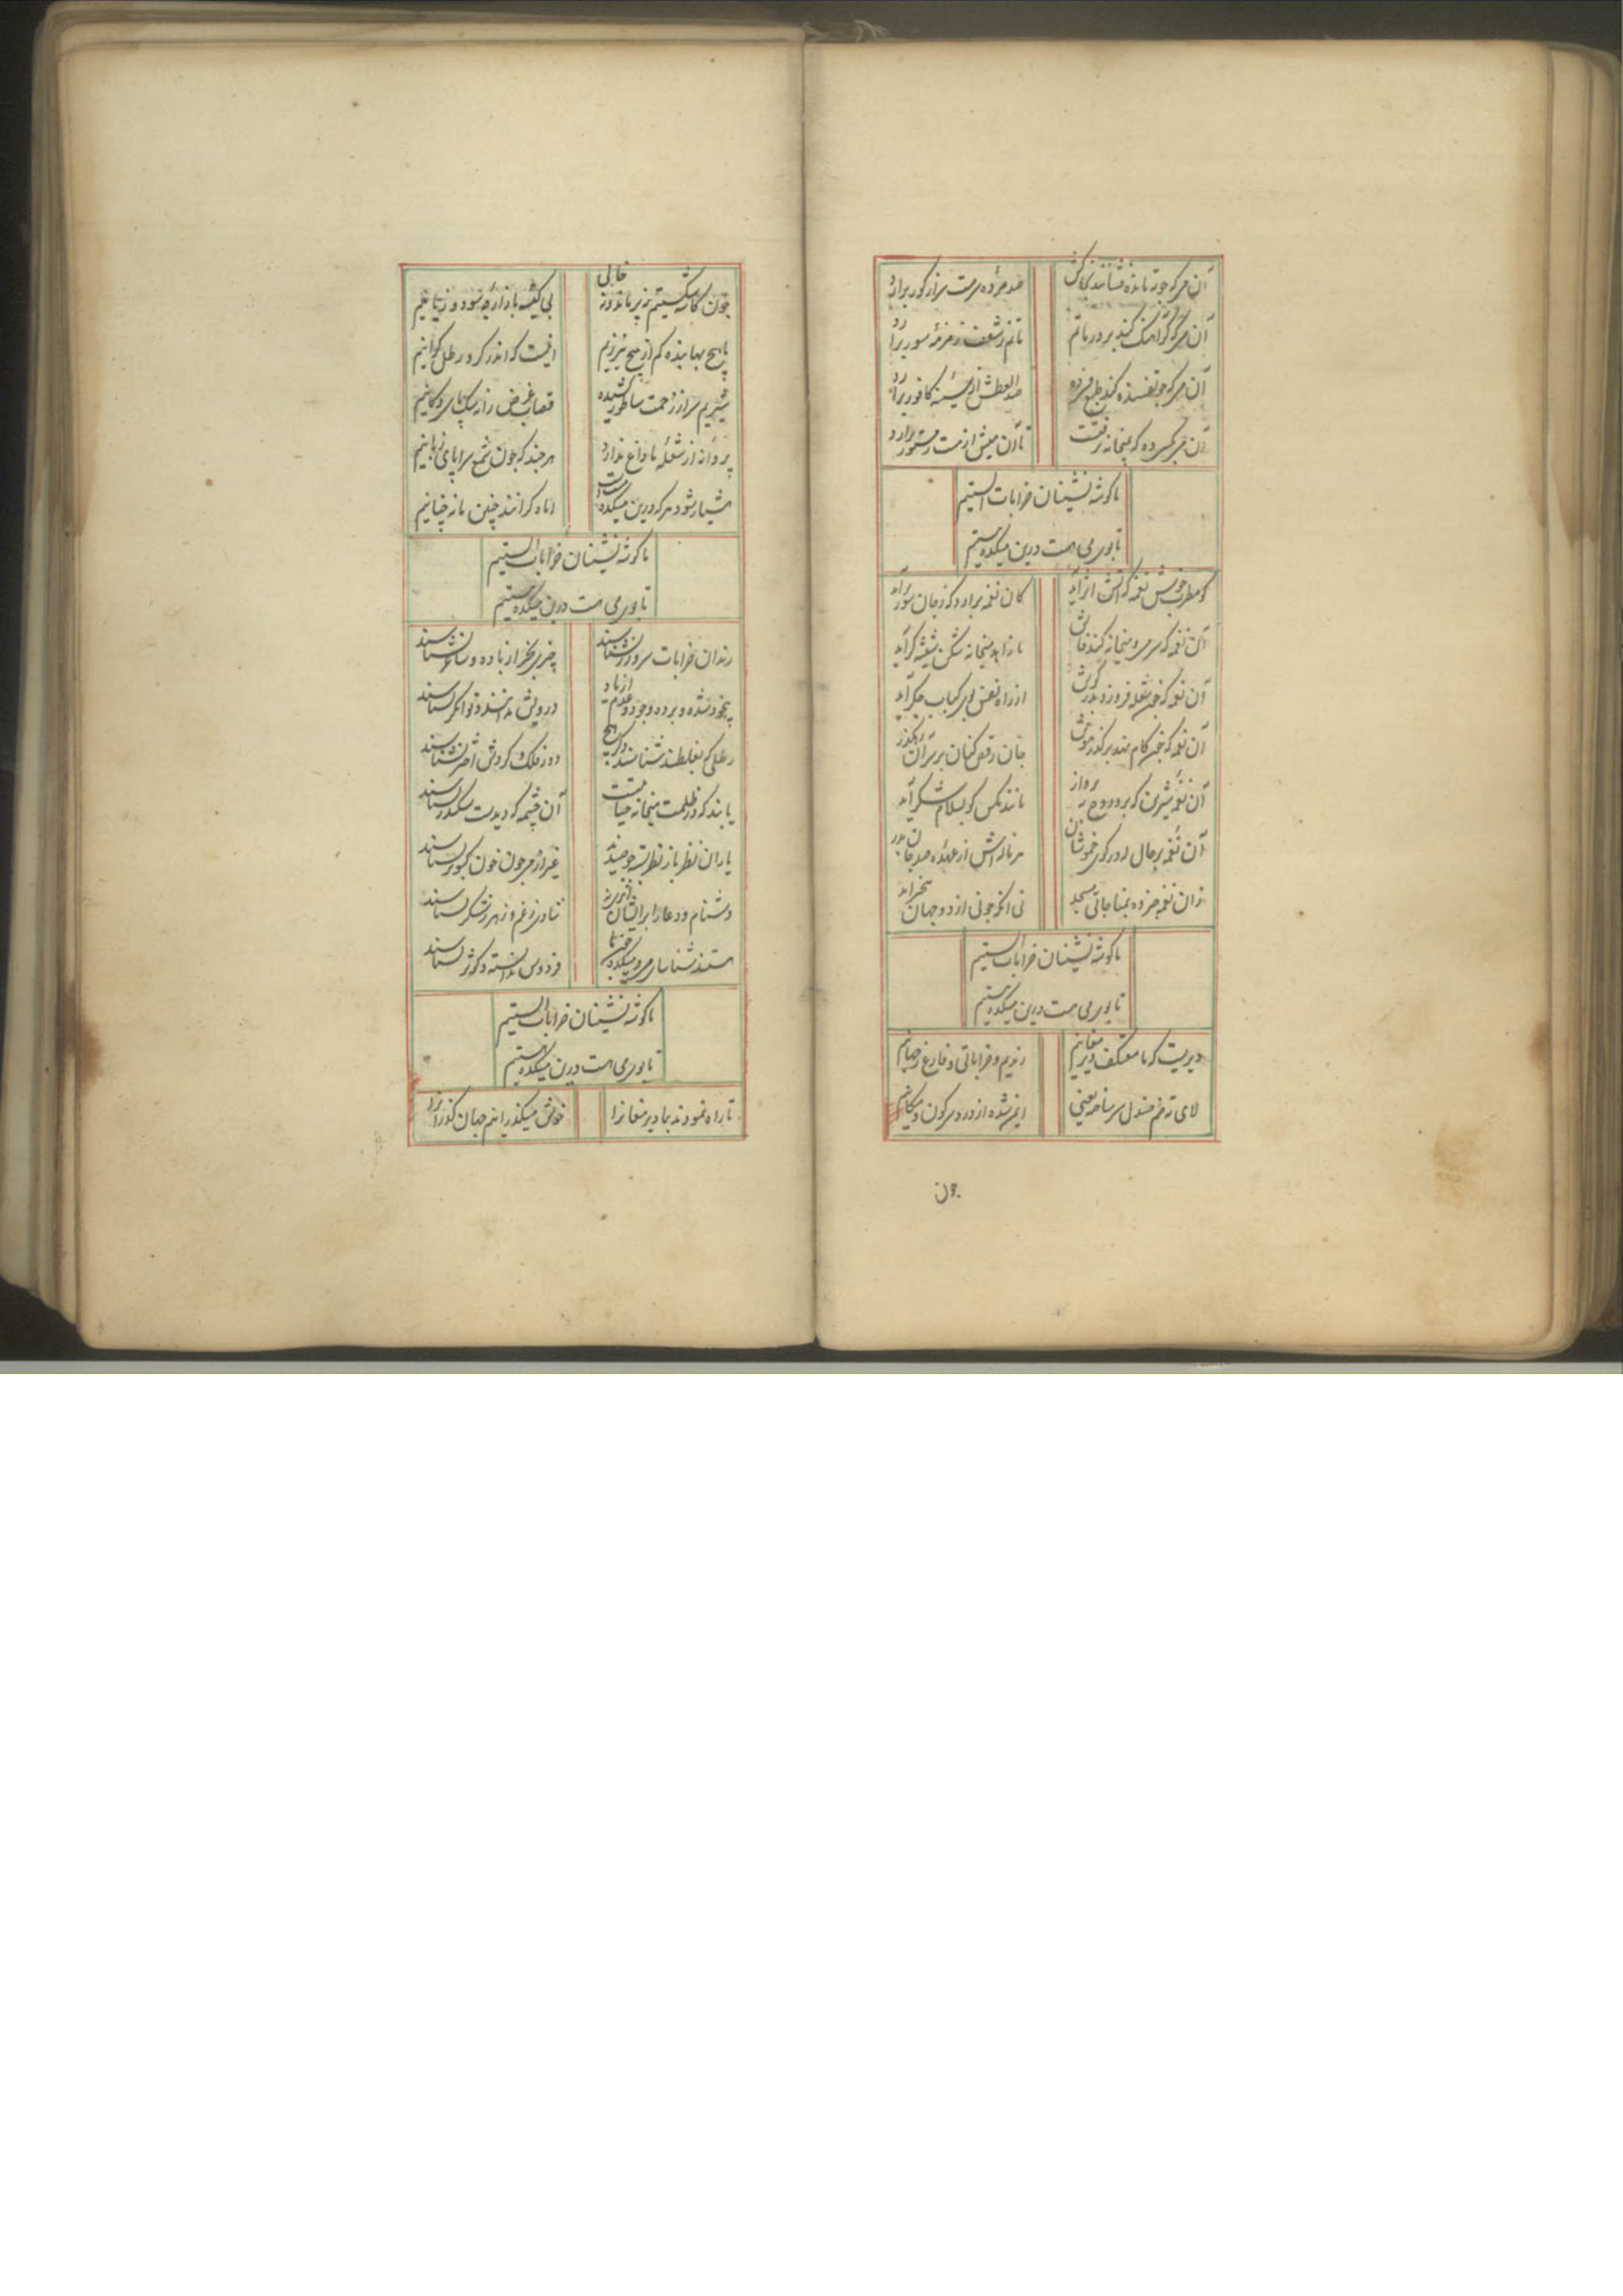 آن می که چو ته مانده فشانند بخاکش
صد مرده سرمست سر از گور برآرد
آن می که گر آهنگ کند بر در ماتم
ماتم ز شعف زمزمه سور برآرد
آن می که چو تفسنده کند طبع فسرده
صد العطش از سینه کافور برآرد
ما گوشه نشینان خرابات الستیم
تا بوی می هست درین میکده مستیم
کو مطرب خوش نغمه که آتش اثر آید
کان نغمه برآرد که ز جان سوز برآید
آن نغمه که سر می و میخانه کند فاش
تا زاهد میخانه شکن شیشه گر آید
آن نغمه که چون شعله فروزد بدر گوش
از راه نفس بوی کباب جگر آید
آن نغمه که چون کام نهد بر گذر هوش
جان رقص کنان بر سر آن رهگذر آید
آن نغمه شیرین که برد روح به پرواز
مانند مگس کو بسلام شکر آید
آن نغمه پر حال که در کوی خموشان
هر ناله اش از عهده صد جان بدر آید
زان نغمه خبر ده بمناجاتی مسجد
نی آنکه چو نی از دو جهان بیخبر آید
ما گوشه نشینان خرابات الستیم
تا بوی می هست درین میکده مستیم
دیریست که ما معتکف دیر مغانیم
رندیم و خراباتی و فارغ ز جهانیم
لای ته خم صندل سر ساخته یعنی
ایمن شده از دردسر کون و مکانیم
چون
چون کاسه شکستیم نه پر ماند و نه خالی
بی کیسه بازار چه سود و چه زیانیم
با هیچ بها بنده کم از هیچ نیرزیم
شیریم سر از زحمت ساطور کشیده
قصاب غرض را نه سگ پای دکانیم
پروانه از شعله ما داغ ندارد
هر چند که چون شمع سراپای زبانیم
هشیار شود هر که درین میکده مست است
اما دگرانند چنین ما نه چنانیم
ما گوشه نشینان خرابات الستیم
تا بوی می هست درین میکده مستیم
رندان خرابات سر و زر نشناسند
چیزی بجز از باده و ساغر نشناسند
بیخود شده و برده وجود و عدم از یاد
درویش ندانند و توانگر نشناسند
رطلی که بغلطد بشناسند و دگر هیچ
دور فلک و گردش اختر نشناسند
یابند که در ظلمت میخانه حیاتست
آن چشمه که میجست سکندر نشناسند
یاران نظر باز نظر بسته چو صیدند
غیر از می چون خون کبوتر نشناسند
دشنام و دعا را بر ایشان
شادی ز غم و زهر ز شکر نشناسند
هستند شناسای می و میکده
فردوس ندانسته و کوثر نشناسند
ما گوشه نشینان خرابات الستیم
تا بوی می هست درین میکده مستیم
تا راه نمودند بما دیر مغانرا
خوش میگذرانیم جهان گذرانرا